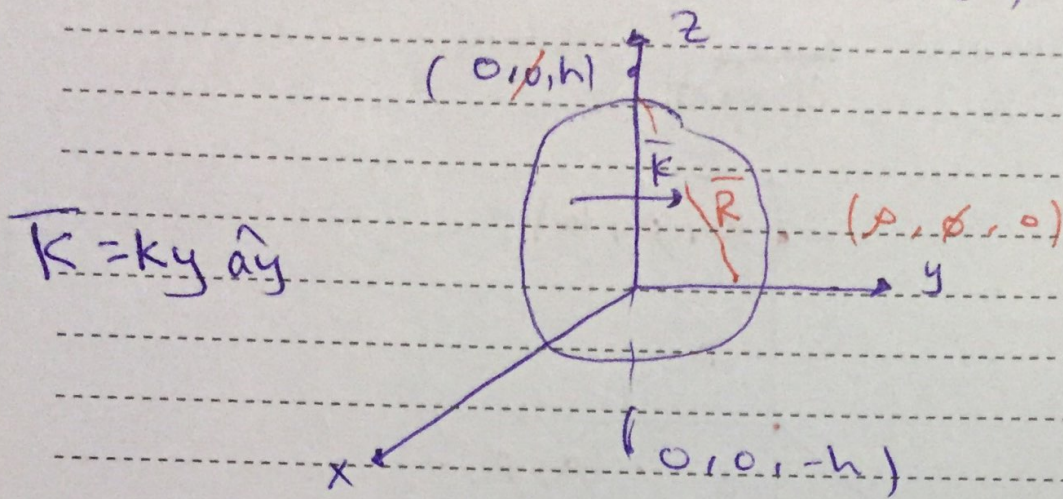 z
(0,ϕ,h)
K̅
R̅
(ρ, ϕ, 0)
K̅ = Ky ây
y
x
(0,0,-h)